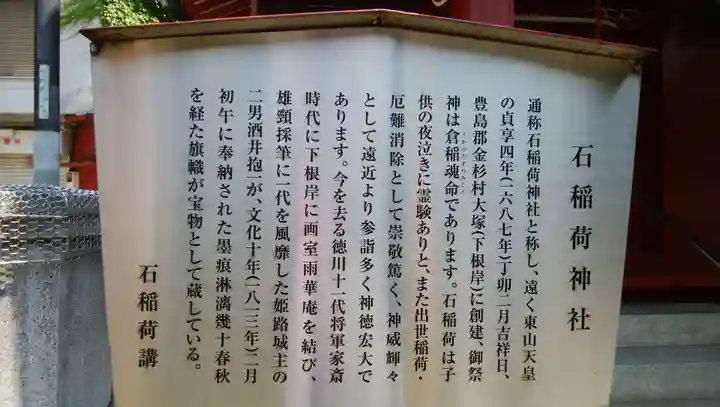 石稲荷神社
通称石稲荷神社と称し、遠く東山天皇
の貞享四年(一六八七年)丁卯二月吉祥日、
豊島郡金杉村大塚(下根岸)に創建、御祭
神は倉稲魂命であります。石稲荷は子
うかのみたまのみこと
供の夜泣きに霊験ありと、また出世稲荷・
厄難消除として崇敬篤く、神威輝々
として遠近より参詣多く神徳宏大で
あります。今を去る徳川十一代将軍家斎
時代に下根岸に画室雨華庵を結び、
雄頸採筆に一代を風靡した姫路城主の
二男酒井抱一が、文化十年(一八一三年)二月
初午に奉納された墨痕淋漓幾十春秋
を経た旗幟が宝物として蔵している。
石稲荷講